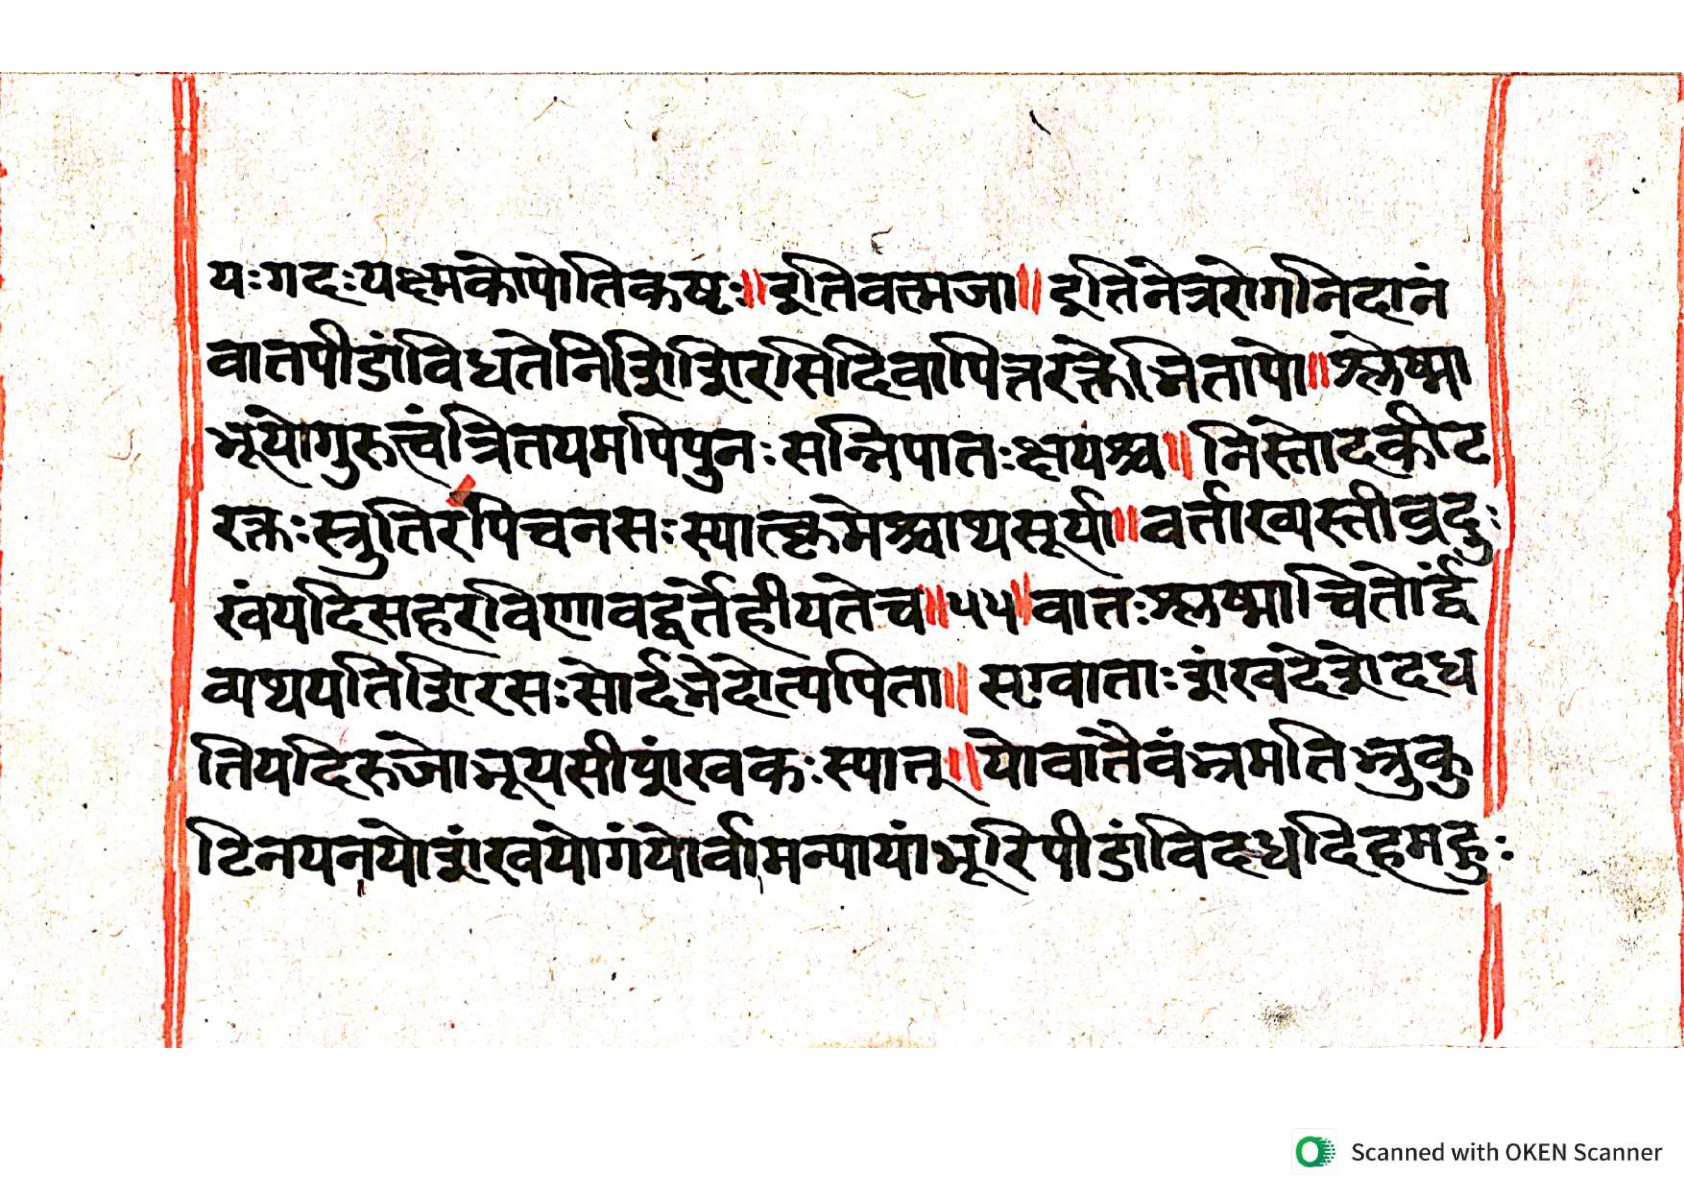 यःगदःयक्ष्मकोपोतिकष्टः॥इतिवत्मजा॥इतिनेत्ररोगनिदानं
वातपीडांविधतेनिशिशिरसिदिवापित्तरक्तेभितापो॥श्लेष्मा
भूयोगुरुत्वंत्रितयमपिपुनःसन्निपातःक्षयश्च॥निस्तोदकीट
रक्तःस्त्रुतिरपिचनसःस्यात्कृमेश्चाथसूर्या॥वर्ताख्यस्तीव्रदुः
खंयदिसहरविणावद्धर्तेहीयतेच॥५५॥वातःश्लष्माचितोर्द्धं
व्यथयतिशिरसःसोर्दभेदोत्यपिता॥सृग्वाताःशंखदेशेदध
तियदिरुजोभूयसीशंखकःस्यात्॥योवातैवंभ्रमतिभ्रुकु
टिनयनयोशंखयोगंयोर्वामन्यायांभूरिपीडांविदधदिहमहुः
Scanned with OKEN Scanner